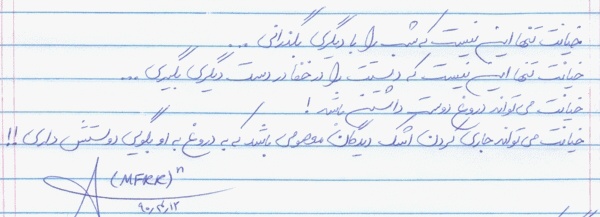 خیانت تنها این نیست که شب را با دیگری بگذرانی ...
خیانت تنها این نیست که دستت را در خفا در دست دیگری بگیری ...
خیانت می‌تواند دروغ دوست داشتن باشد !
خیانت می‌تواند جاری کردن اشک دیدگان معصومی باشد که به دروغ به او بگویی دوستش داری !!
(MFRR)ⁿ
۹۰,۴,۱۲